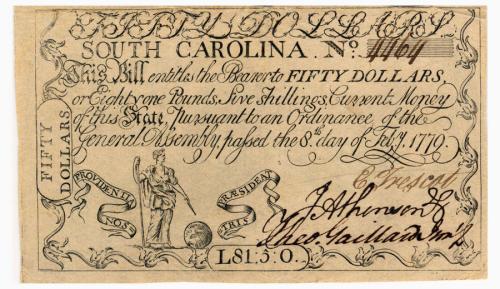 FIFTY DOLLARS.
SOUTH CAROLINA. No. 4464
This Bill entitles the Bearer to FIFTY DOLLARS,
or Eighty one Pounds, Five Shillings Current Money
of this State, Pursuant to an Ordinance of the
General Assembly, passed the 8th day of Feby. 1779.
FIFTY
DOLLARS
PROVIDENTIA
NOS
PRÆSIDEAT
TRIS
E Prescot
J Atkinson
Theo. Gaillard
L81:5:0.